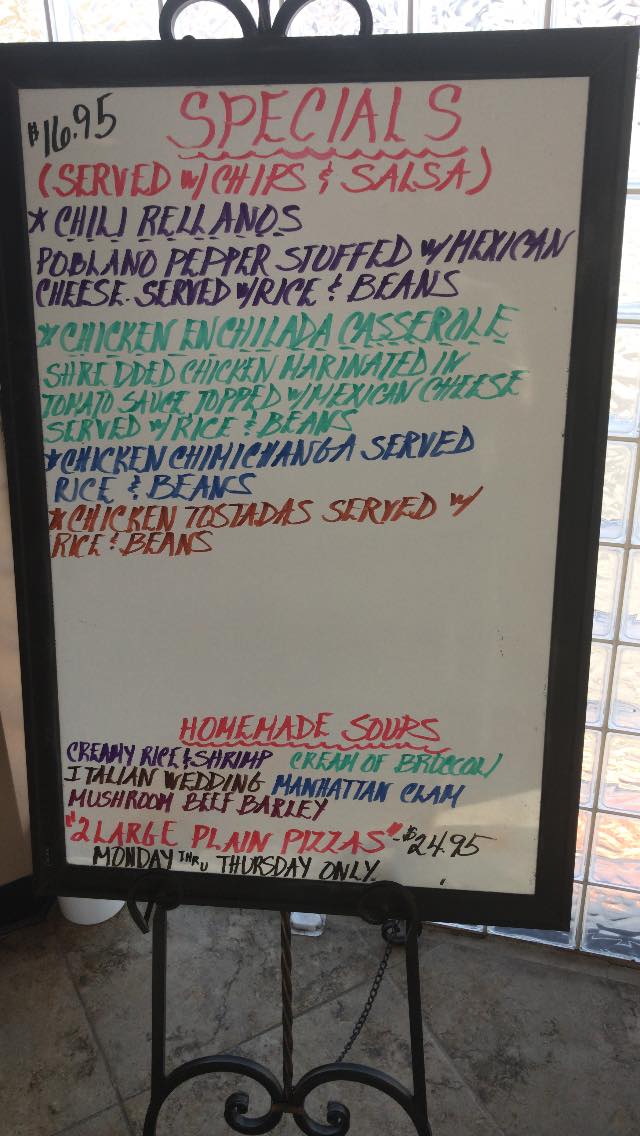 $16.95
SPECIALS
(SERVED W/ CHIPS & SALSA)
* CHILI RELLANOS
POBLANO PEPPER STUFFED W/ MEXICAN
CHEESE. SERVED W/ RICE & BEANS
* CHICKEN ENCHILADA CASSEROLE
SHREDDED CHICKEN MARINATED IN
TOMATO SAUCE TOPPED W/ MEXICAN CHEESE
SERVED W/ RICE & BEANS
* CHICKEN CHIMICHANGA SERVED
RICE & BEANS
* CHICKEN TOSTADAS SERVED W/
RICE & BEANS
HOMEMADE SOUPS
CREAMY RICE & SHRIMP CREAM OF BROCCOLI
ITALIAN WEDDING MANHATTAN CLAM
MUSHROOM BEEF BARLEY
"2 LARGE PLAIN PIZZAS" - $24.95
MONDAY THRU THURSDAY ONLY.